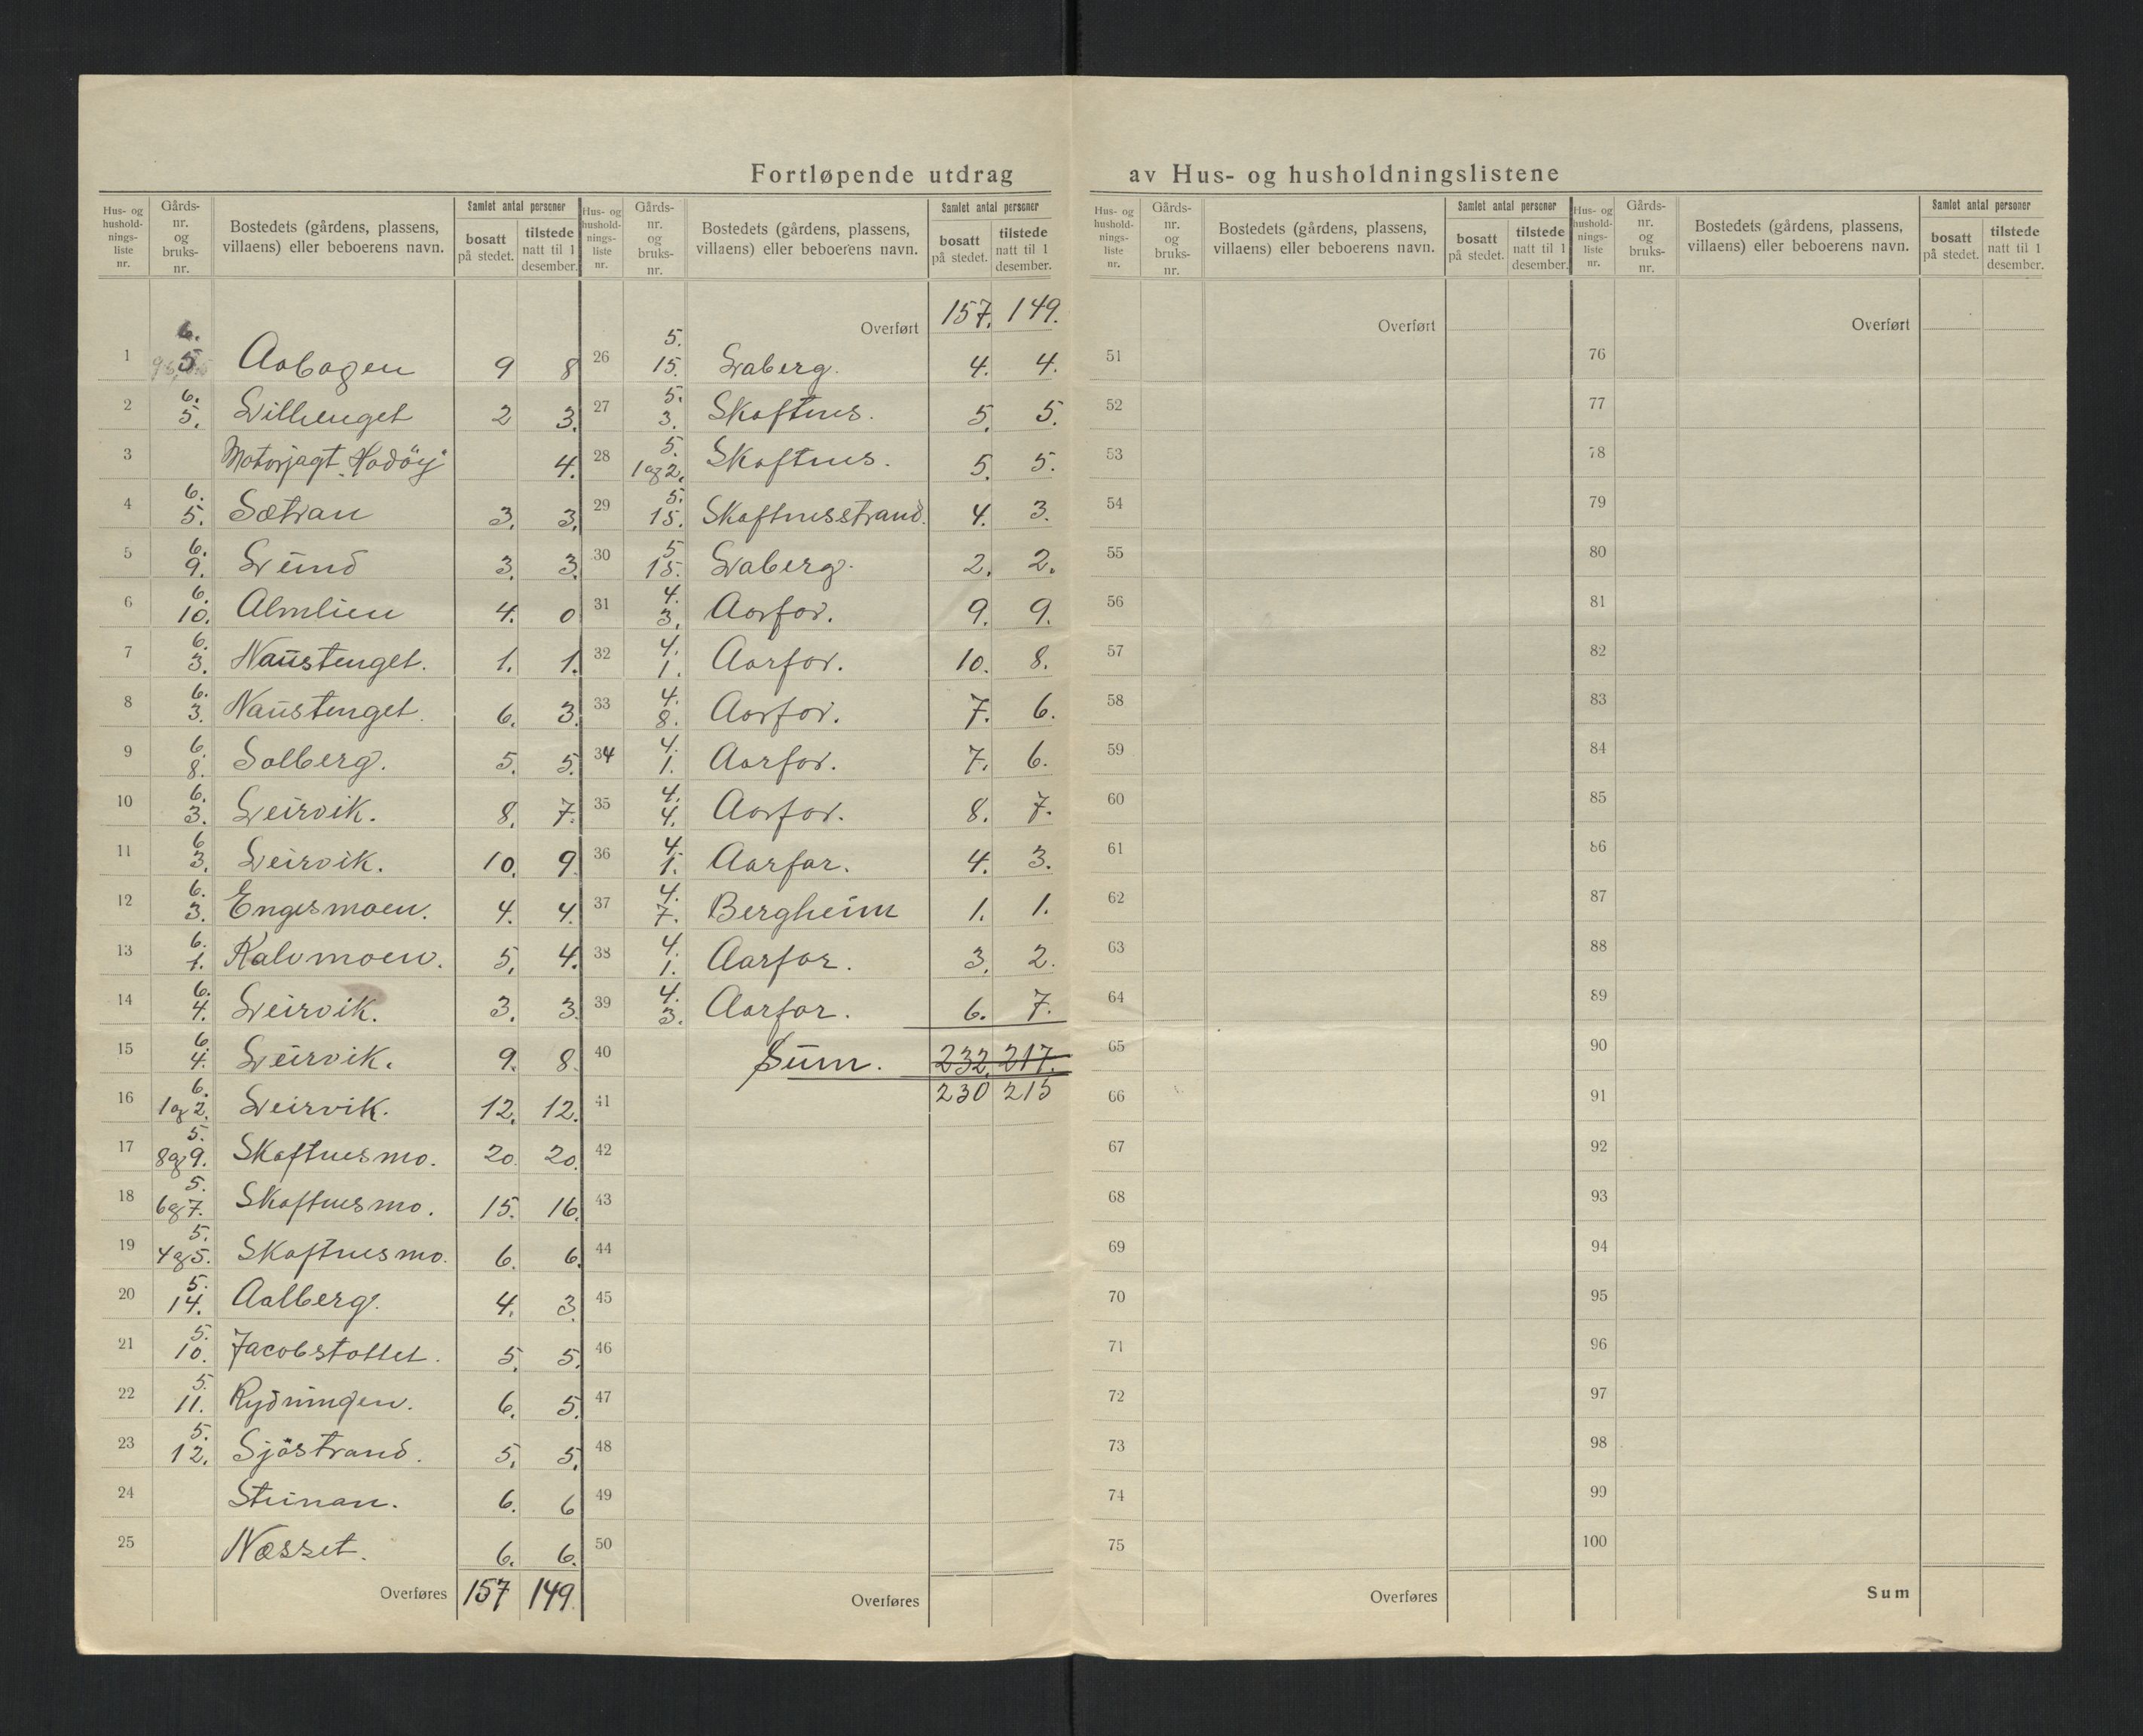 Fortløpende utdrag av Hus- og husholdningslistene
Hus- og hushold-nings-liste nr. Gårds-nr. og bruks-nr. Bostedets (gårdens, plassens, villaens) eller beboerens navn. Samlet antal personer bosatt på stedet. tilstede natt til 1 desember.
1 6. 5 Aabogen 9 8
2 6. 5. Lillenget 2 3.
3 Motorjagt "Hadöy" 4.
4 6. 5. Sætran 3. 3.
5 6. 9. Lund 3. 3.
6 6. 10. Almlien 4. 0
7 6. 3. Naustenget. 1. 1.
8 6. 3. Naustenget. 6. 3.
9 6. 8. Solberg. 5. 5.
10 6. 3. Leirvik. 8. 7.
11 6 3. Leirvik. 10. 9.
12 6. 3. Engesmoen. 4. 4.
13 6. 1. Kalvmoen. 5. 4.
14 6. 4. Leirvik. 3. 3.
15 6. 4. Leirvik. 9. 8.
16 6. 1og2. Leirvik. 12. 12.
17 5. 8og9. Skaftnesmo. 20. 20.
18 5. 6og7. Skaftnesmo. 15. 16.
19 5. 4og5. Skaftnesmo. 6. 6.
20 5. 14. Aalberg. 4. 3
21 5. 10. Jacobstottet. 5. 5.
22 5. 11. Rydningen. 6. 5.
23 5. 12. Sjöstrand. 5. 5.
24 Steinan. 6. 6
25 Næsset. 6. 6.
Overføres 157 149.
Hus- og hushold-nings-liste nr. Gårds-nr. og bruks-nr. Bostedets (gårdens, plassens, villaens) eller beboerens navn. Samlet antal personer bosatt på stedet. tilstede natt til 1 desember.
Overført 157. 149.
26 5. 15. Laberg. 4. 4.
27 5. 3. Skaftnes. 5. 5.
28 5. 1og2. Skaftnes. 5. 5.
29 5. 15. Skaftnesstrand. 4. 3.
30 5 15. Laberg. 2. 2.
31 4. 3. Aarfor. 9. 9.
32 4. 1. Aarfor. 10. 8.
33 4. 8. Aarfor. 7. 6.
34 4. 1. Aarfor. 7. 6.
35 4. 4. Aarfor. 8. 7.
36 4. 1. Aarfor. 4. 3.
37 4. 7. Bergheim 1. 1.
38 4. 1. Aarfor. 3. 2.
39 4. 3. Aarfor. 6. 7.
40 Sum. 232. 217.
41 230 215
42
43
44
45
46
47
48
49
50
Overføres
Hus- og hushold-nings-liste nr. Gårds-nr. og bruks-nr. Bostedets (gårdens, plassens, villaens) eller beboerens navn. Samlet antal personer bosatt på stedet. tilstede natt til 1 desember.
Overført
51
52
53
54
55
56
57
58
59
60
61
62
63
64
65
66
67
68
69
70
71
72
73
74
75
Overføres
Hus- og hushold-nings-liste nr. Gårds-nr. og bruks-nr. Bostedets (gårdens, plassens, villaens) eller beboerens navn. Samlet antal personer bosatt på stedet. tilstede natt til 1 desember.
Overført
76
77
78
79
80
81
82
83
84
85
86
87
88
89
90
91
92
93
94
95
96
97
98
99
100
Sum